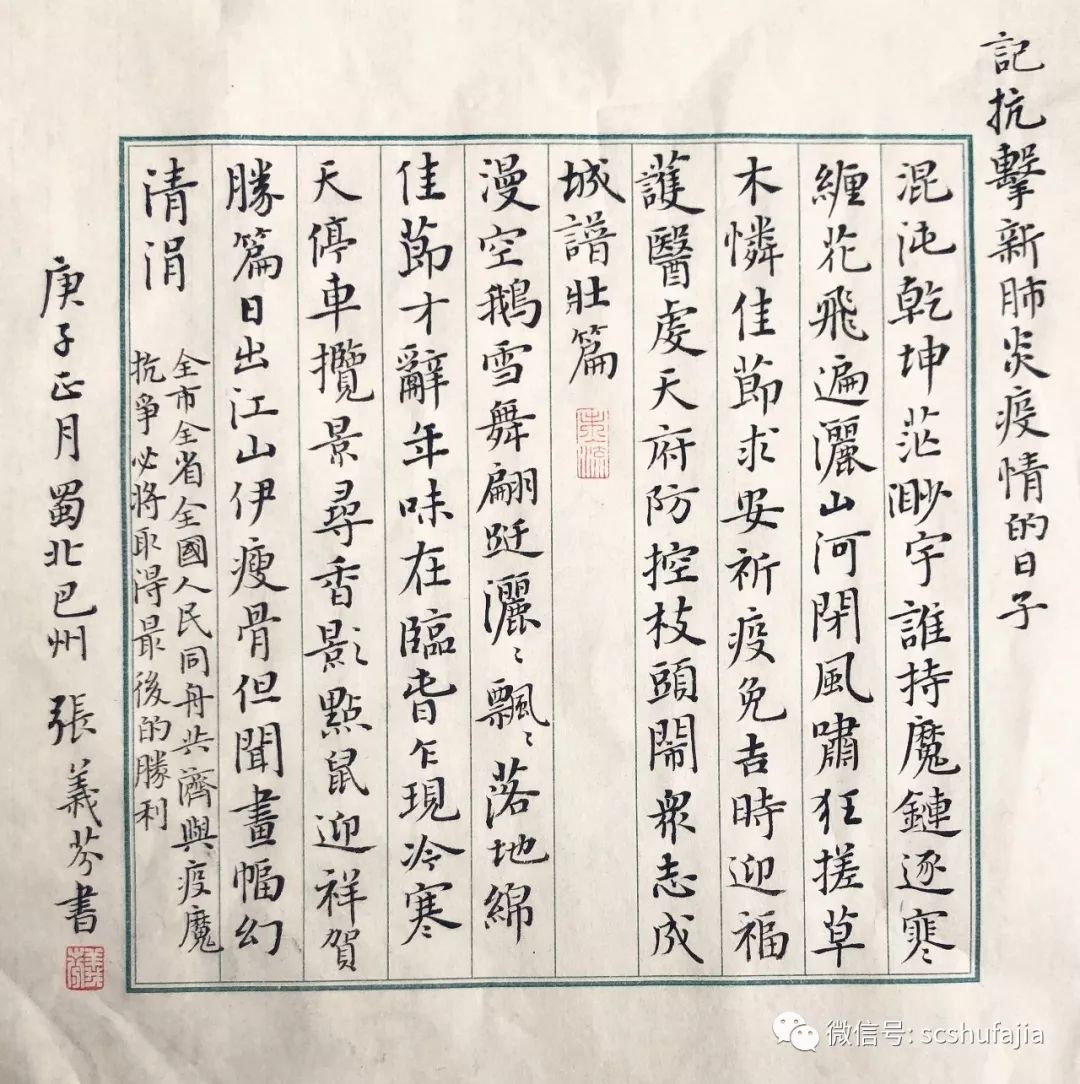 記抗擊新肺炎疫情的日子
混沌乾坤茫渺宇誰持魔鏈逐寒
纏花飛遍灑山河閉風嘯狂搓草
木憐佳節求安祈疫免吉時迎福
護醫虔天府防控枝頭鬧眾志成
城譜壯篇
漫空鵝雪舞翩跹灑〻飄〻落地綿
佳節才辭年味在臨春乍現冷寒
天停車攬景尋香影點鼠迎祥賀
勝篇日出江山伊瘦骨但聞畫幅幻
清涓
全市全省全國人民同舟共濟與疫魔
抗爭必將取得最後的勝利
庚子正月蜀北巴州 張義芬書
微信号: scshufajia